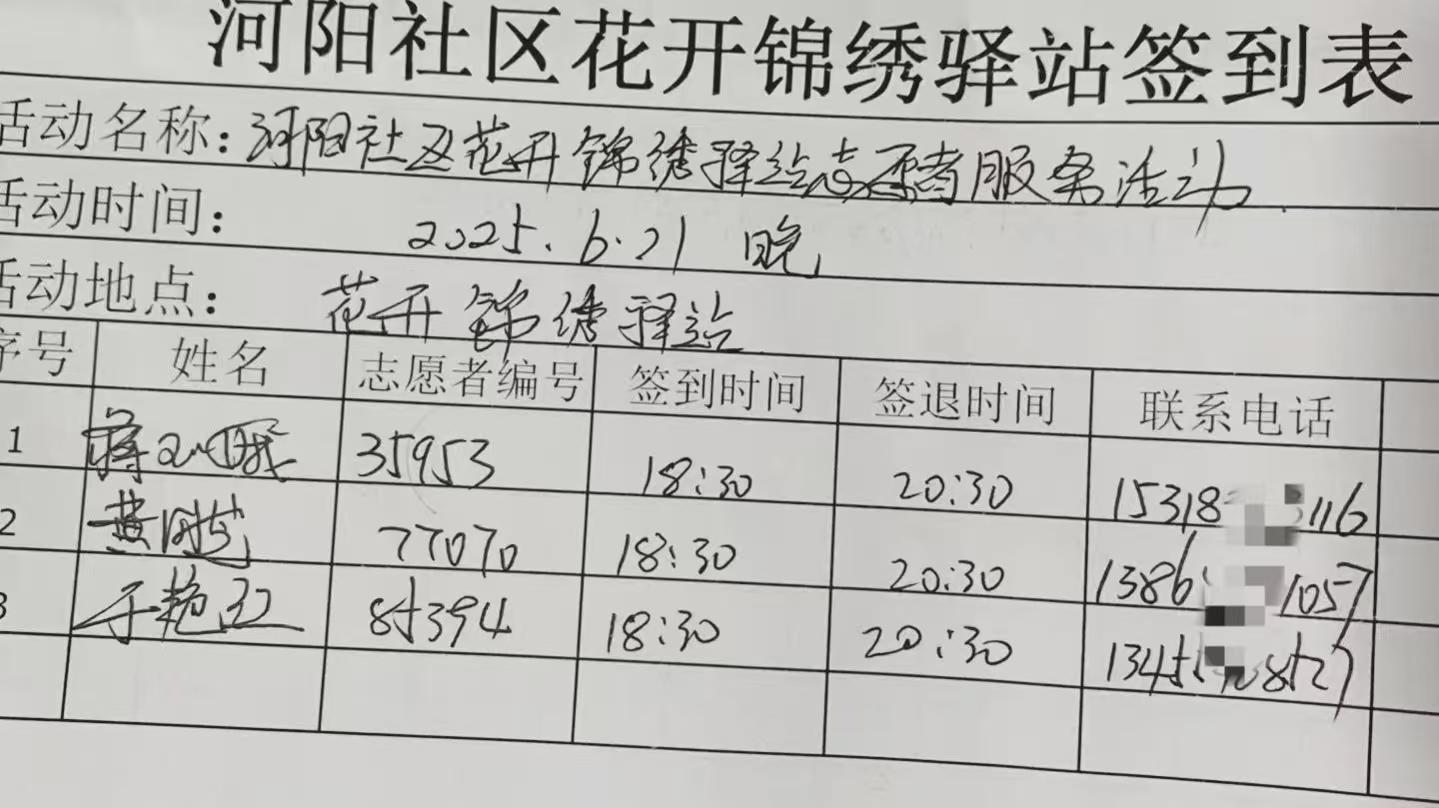 河阳社区花开锦绣驿站签到表
活动名称：河阳社区花开锦绣驿站志愿者服务活动
活动时间： 2025.6.21 晚
活动地点： 花开锦绣驿站
序号 姓名 志愿者编号 签到时间 签退时间 联系电话
1 蒋 35953 18:30 20:30 15318 116
2 黄 77070 18:30 20:30 1386 1057
3 于艳红 85394 18:30 20:30 1345 8527